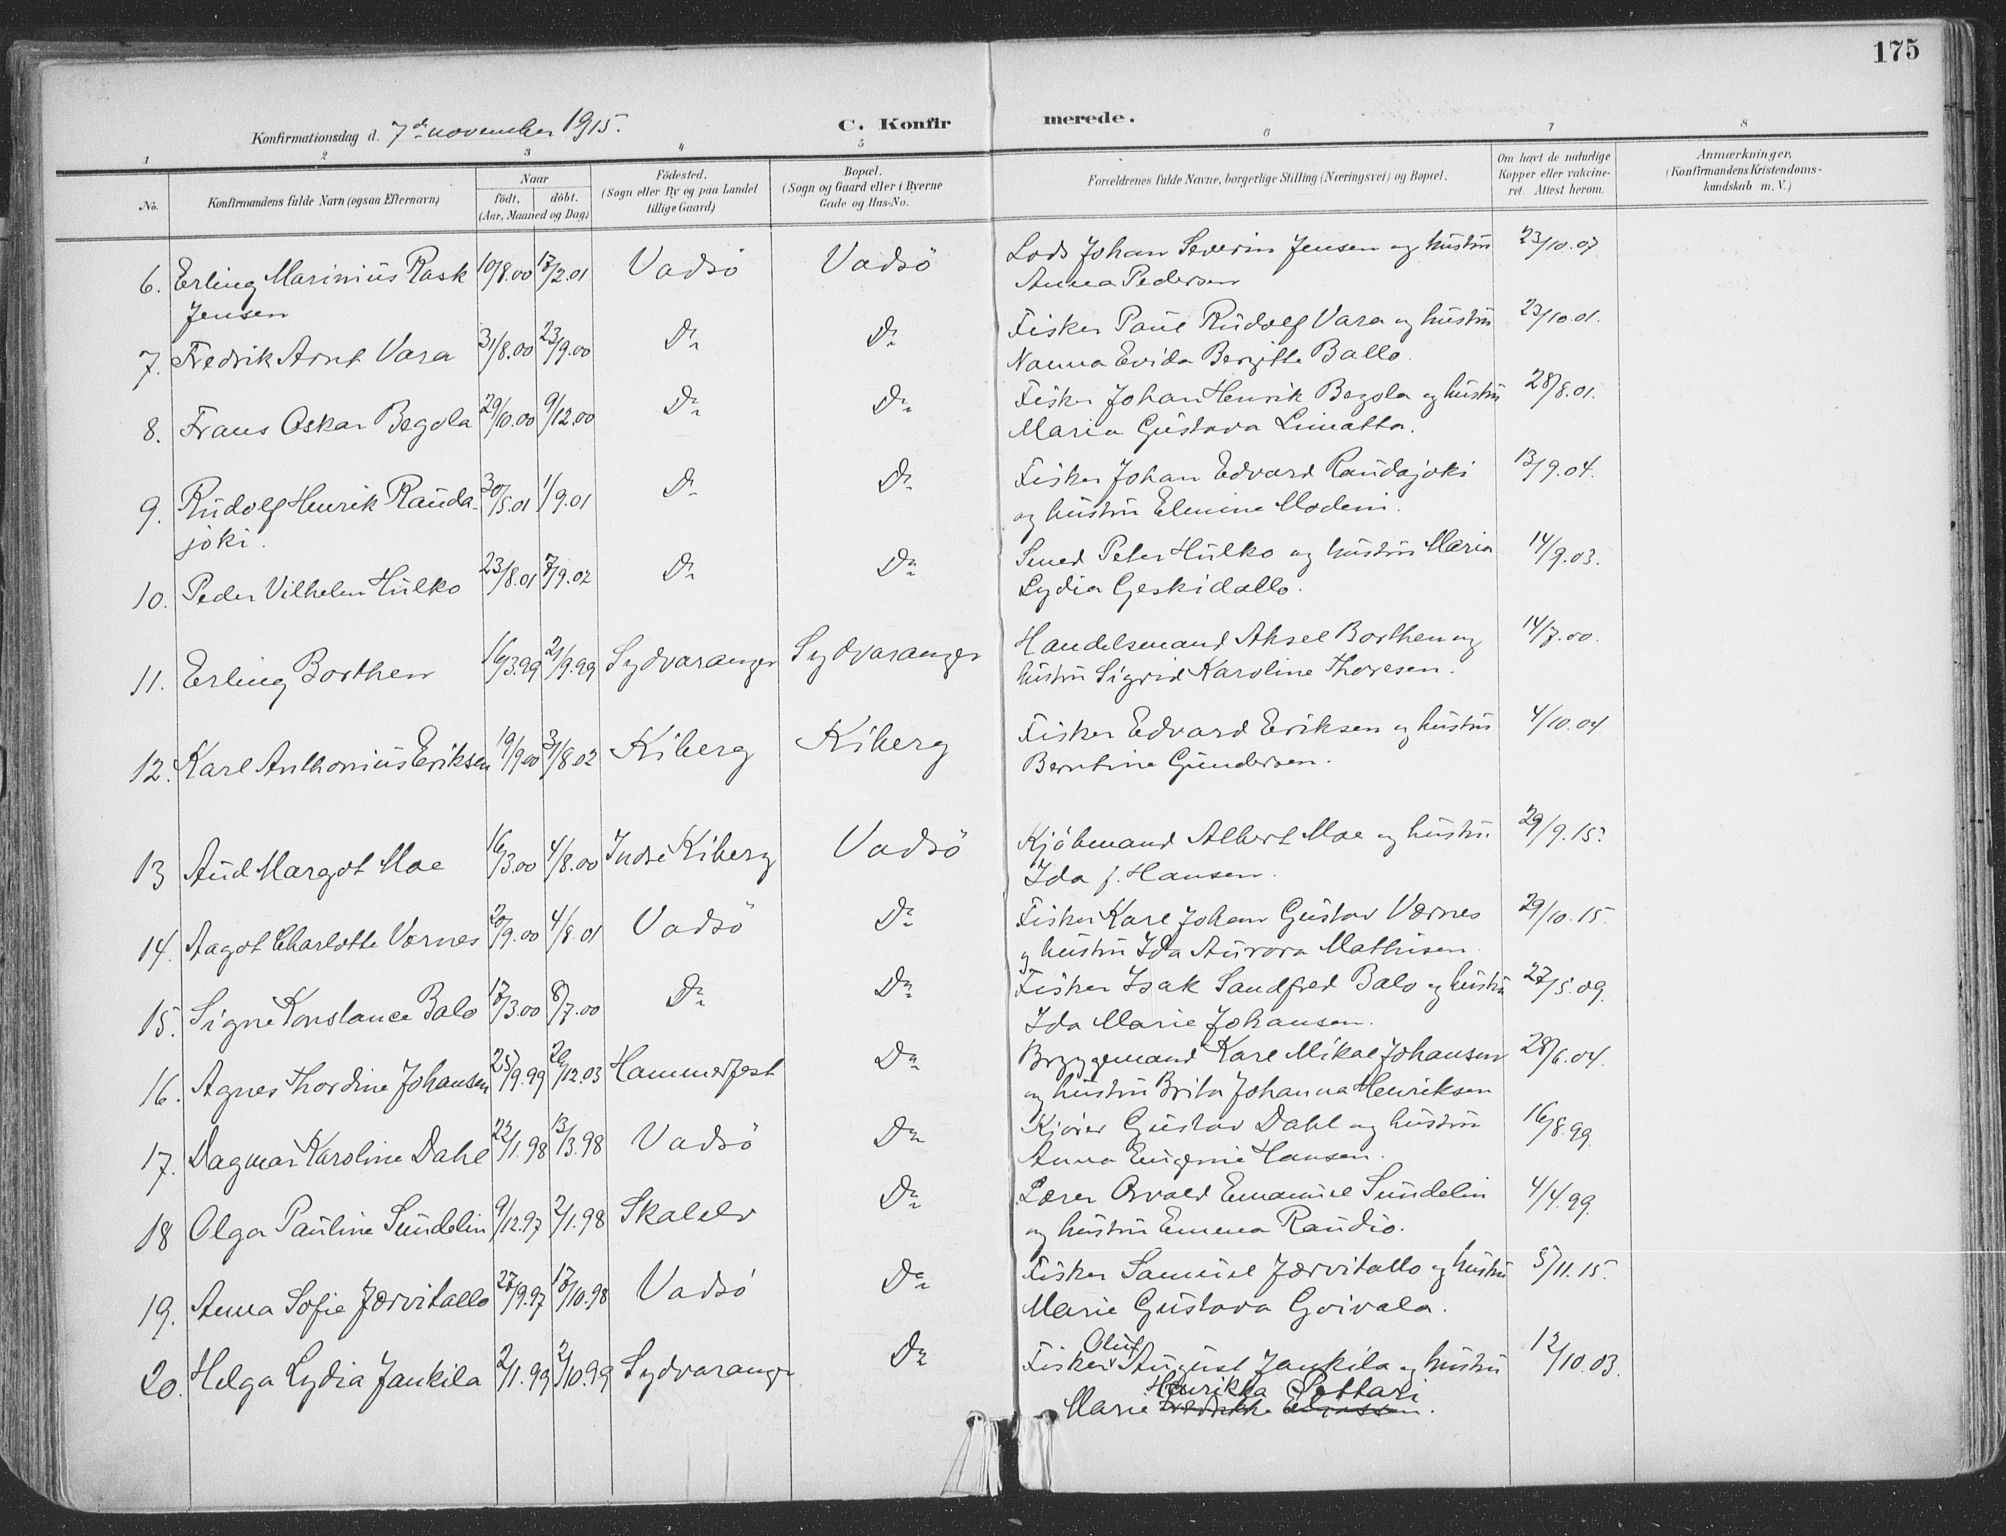 175
Konfirmationsdag d. 7de november 1915.
C. Konfirmerede.
1 2 3 4 5 6 7 8
No.
Konfirmandens fulde Navn (ogsaa Efternavn)
Naar
födt. döbt.
(Aar, Maaned og Dag)
Födested.
(Sogn eller By og paa Landet
tillige Gaard)
Bopæl.
(Sogn og Gaard eller i Byerne
Gade og Hus-No.
Forældrenes fulde Navne, borgerlige Stilling (Næringsvei) og Bopæl.
Om havt de naturlige
Kopper eller vakcine-
ret. Attest herom.
Anmærkninger,
(Konfirmandens Kristendoms-
kundskab m. V.)
6. Erling Marinius Rask 10/8.00 17/2.01 Vadsö Vadsö Lods Johan Severin Jensen og hustru 23/10.07
Jensen Anna Pedersen
7. Fredrik Arnt Vara 31/8.00 23/9.00 Do Do Fisker Paul Rudolf Vara og hustru 23/10.01.
Nanna Evida Bergitte Ballo.
8. Frans Oskar Begola 29/10.00 9/12.00 Do Do Fisker Johan Henrik Begola og hustru 28/8.01.
Maria Gustava Limatta.
9. Rudolf Henrik Rauda- 30/5.01 1/9.01 Do Do Fisker Johan Edvard Raudajoki 13/9.04.
joki. og hustru Elmine Modeni.
10. Peder Vilhelm Hulko 23/8.01 7/9.02 Do Do Smed Peter Hulko og hustru Maria 14/9.03.
Lydia Geskidallo.
11. Erling Borthen 16/3.99 21/9.99 Sydvaranger Sydvaranger Handelsmand Aksel Borthen og 14/7.00.
hustru Sigrid Karoline Thoresen.
12. Karl Anthonius Eriksen 19/9.00 31/8.02 Kiberg Kiberg Fisker Edvard Eriksen og hustru 4/10.04
Berntine Gundersen.
13 Aud Margot Moe 16/3.00 4/8.00 Indre Kiberg Vadsö Kjöbmand Albert Moe og hustru 29/9.15.
Ida f. Hansen.
14. Aagot Charlotte Værnes 20/9.00 4/8.01 Vadsö Do Fisker Karl Johan Gustav Værnes 29/10.15.
og hustru Ida Aurora Mathisen.
15. Signe Konstance Balo 17/3.00 8/7.00 Do Do Fisker Isak Sandfred Balo og hustru 27/5.09.
Ida Marie Johansen.
16. Agnes Thordine Johansen 25/9.99 26/12.03 Hammerfest Do Bryggemand Karl Mikal Johansen 28/6.04.
og hustru Brita Johanna Henriksen
17. Dagmar Karoline Dahl 22/1.98 13/3.98 Vadsö Do Kjörer Gustav Dahl og hustru 16/8.99.
Anna Eugenie Hansen.
18 Olga Pauline Sundelin 9/12.97 2/1.98 Skalelv Do Lærer Osvald Emanuel Sundelin 4/4.99.
og hustru Emma Raudio.
19. Anna Sofie Jærvitallo 27/9.97 17/10.98 Vadsö Do Fisker Samuel Jærvitallo og hustru 5/11.15.
Marie Gustava Goivala.
Oluf
20. Helga Lydia Jankila 2/1.99 2/10.99 Sydvaranger Do Fisker August Jankila og hustru 12/10.03.
Henrikka Pettari
Marie